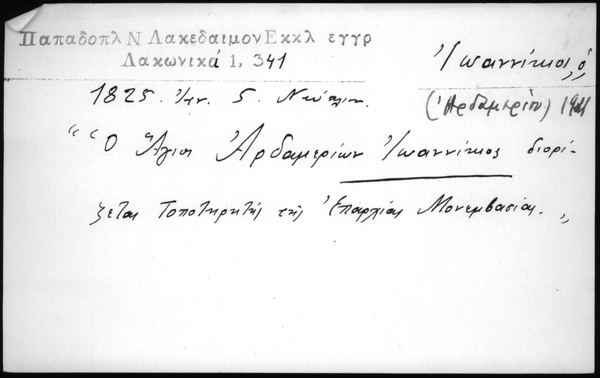 Παπαδοπλ Ν Λακεδαιμον Εκκλ εγγρ
Λακωνικά 1, 341
Ἰωαννίκιος, ὁ
(Ἀρδαμερίου) 1941
1825. Ἰαν. 5. Ναύπλιον.
“ “Ὁ Ἅγιος Ἀρδαμερίων Ἰωαννίκιος διορί-
ζεται Τοποτηρητής τῆς Ἐπαρχίας Μονεμβασίας. „